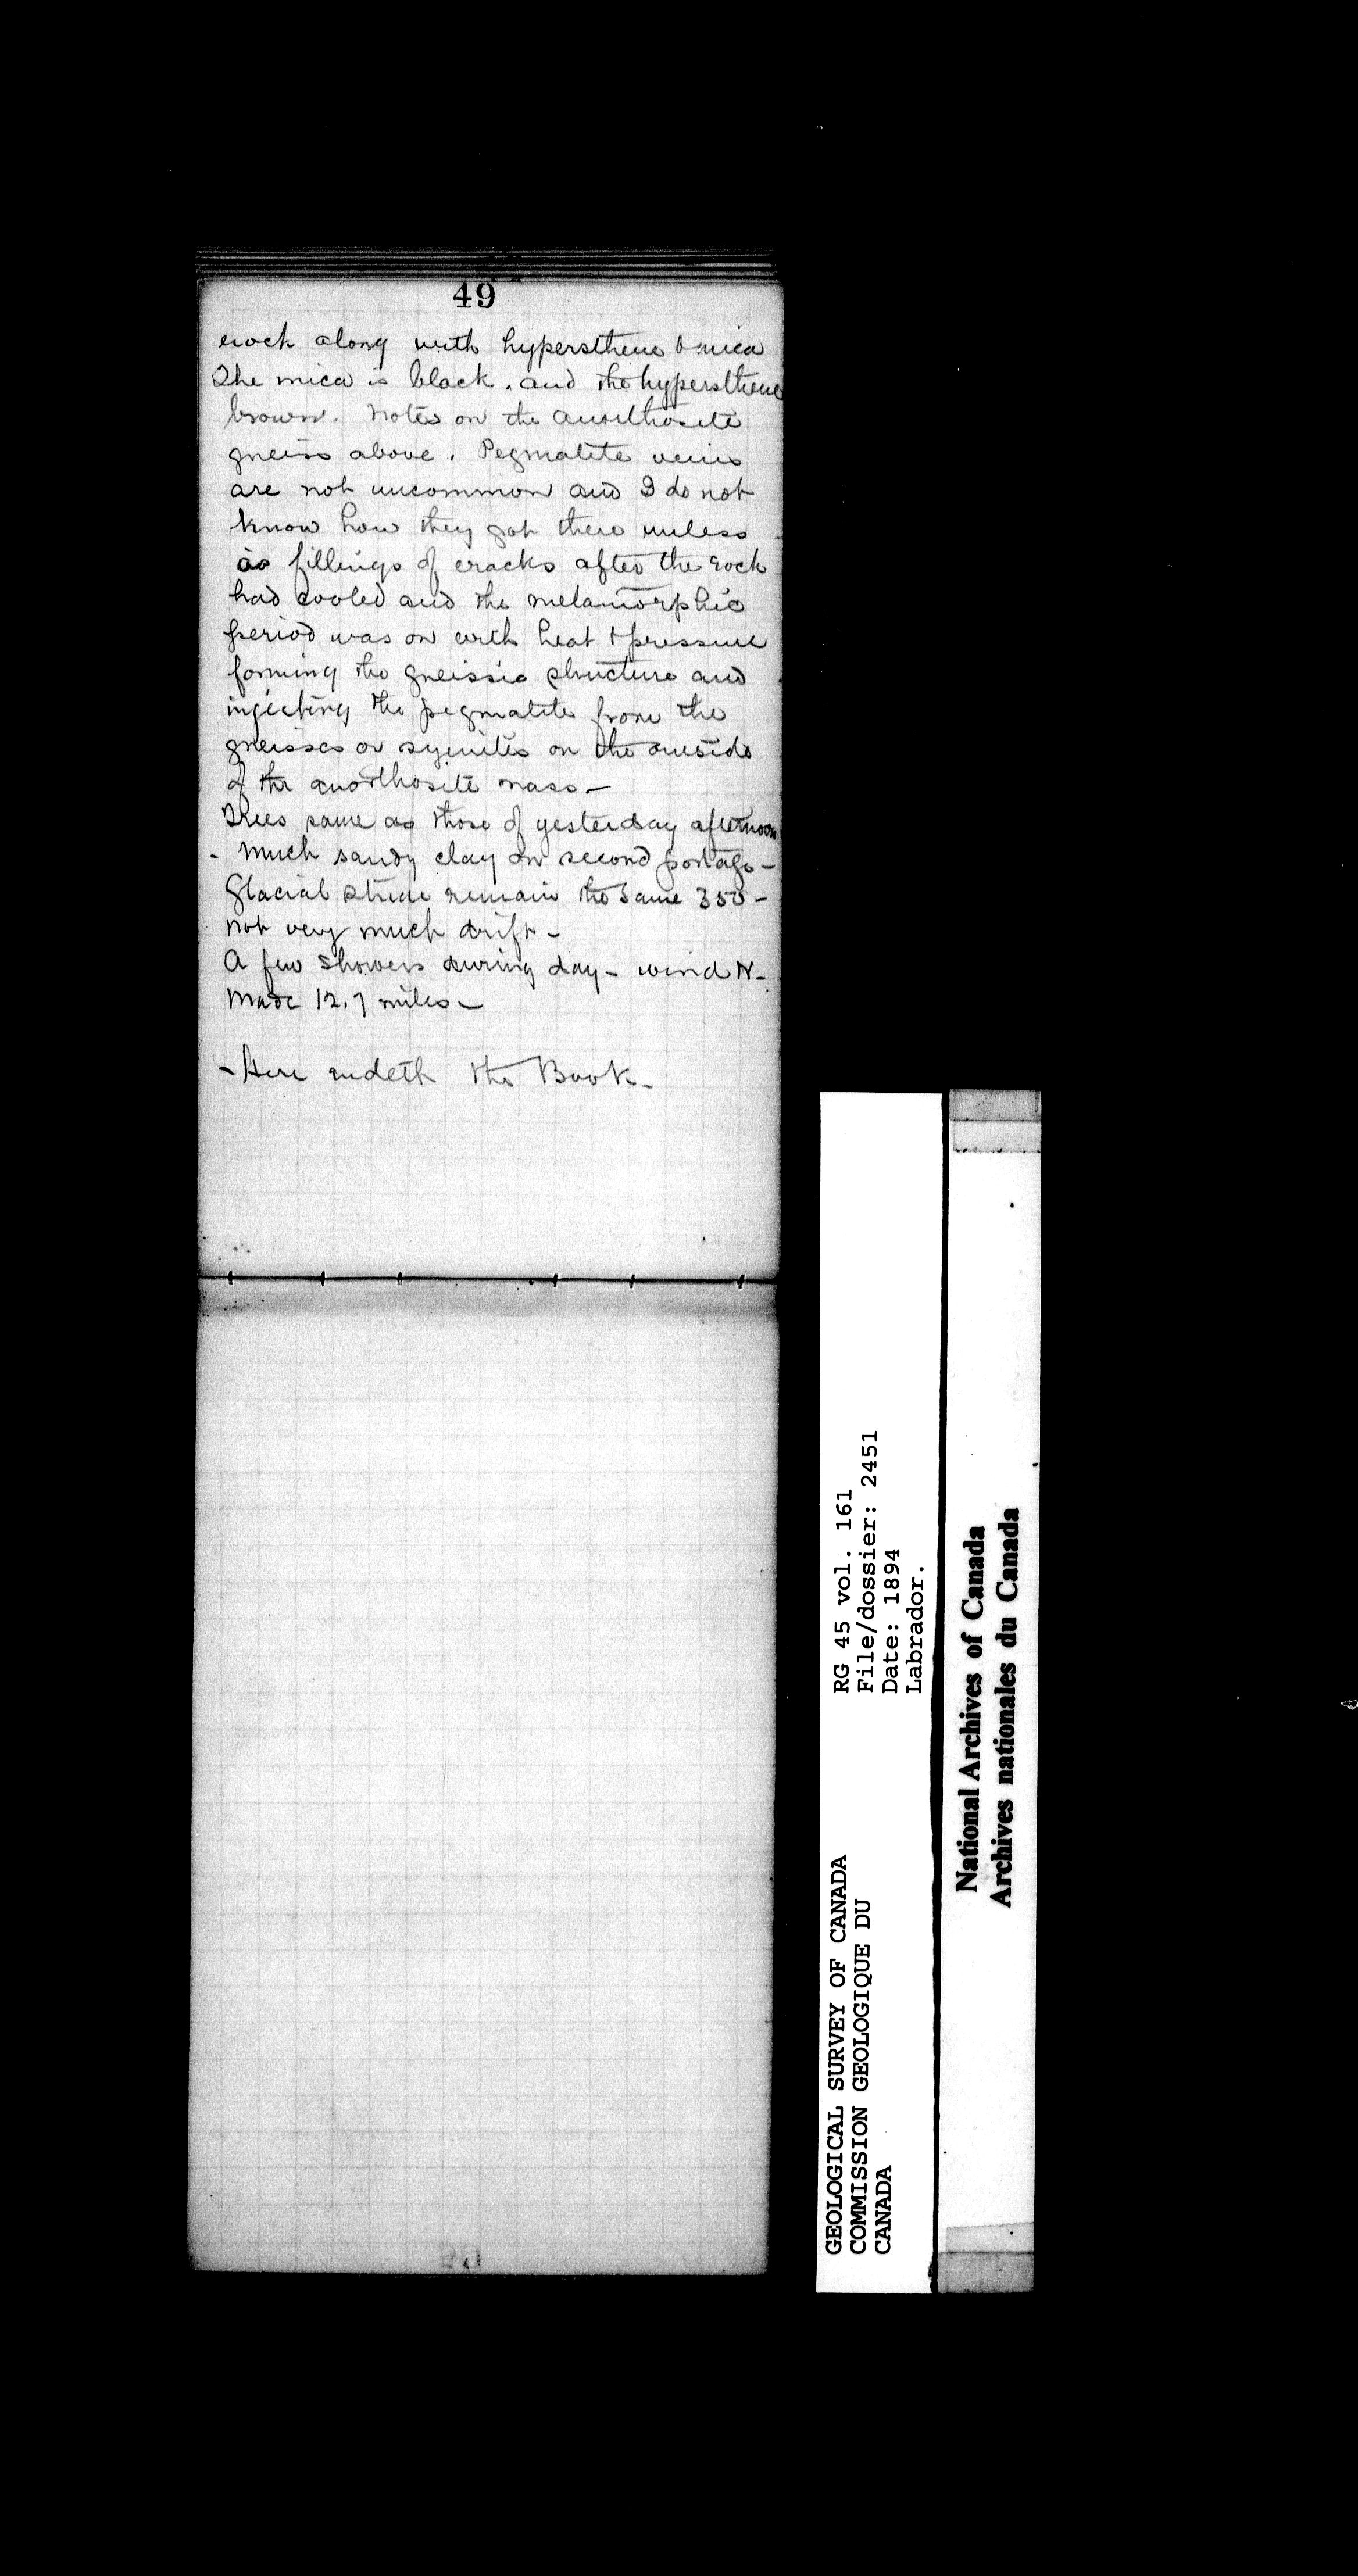 49
rock along with hypersthene & mica
The mica is black. and the hypersthene
brown. Notes on the anorthosite
gneiss above. Pegmatite veins
are not uncommon and I do not
know how they got there unless
as fillings of cracks after the rock
had cooled and the metamorphic
period was on with heat & pressure
forming the gneissic structure and
injecting the pegmatite from the
gneisses or syenites on the outside
of the anorthosite mass —
Trees same as those of yesterday afternoon
- Much sandy clay on second portage —
Glacial striae remain the same 350 —
not very much drift —
A few showers during day — wind N —
Made 12.7 miles —
- Here endeth the Book —
RG 45 vol. 161
File/dossier: 2451
Date: 1894
Labrador.
GEOLOGICAL SURVEY OF CANADA
COMMISSION GEOLOGIQUE DU
CANADA
National Archives of Canada
Archives nationales du Canada